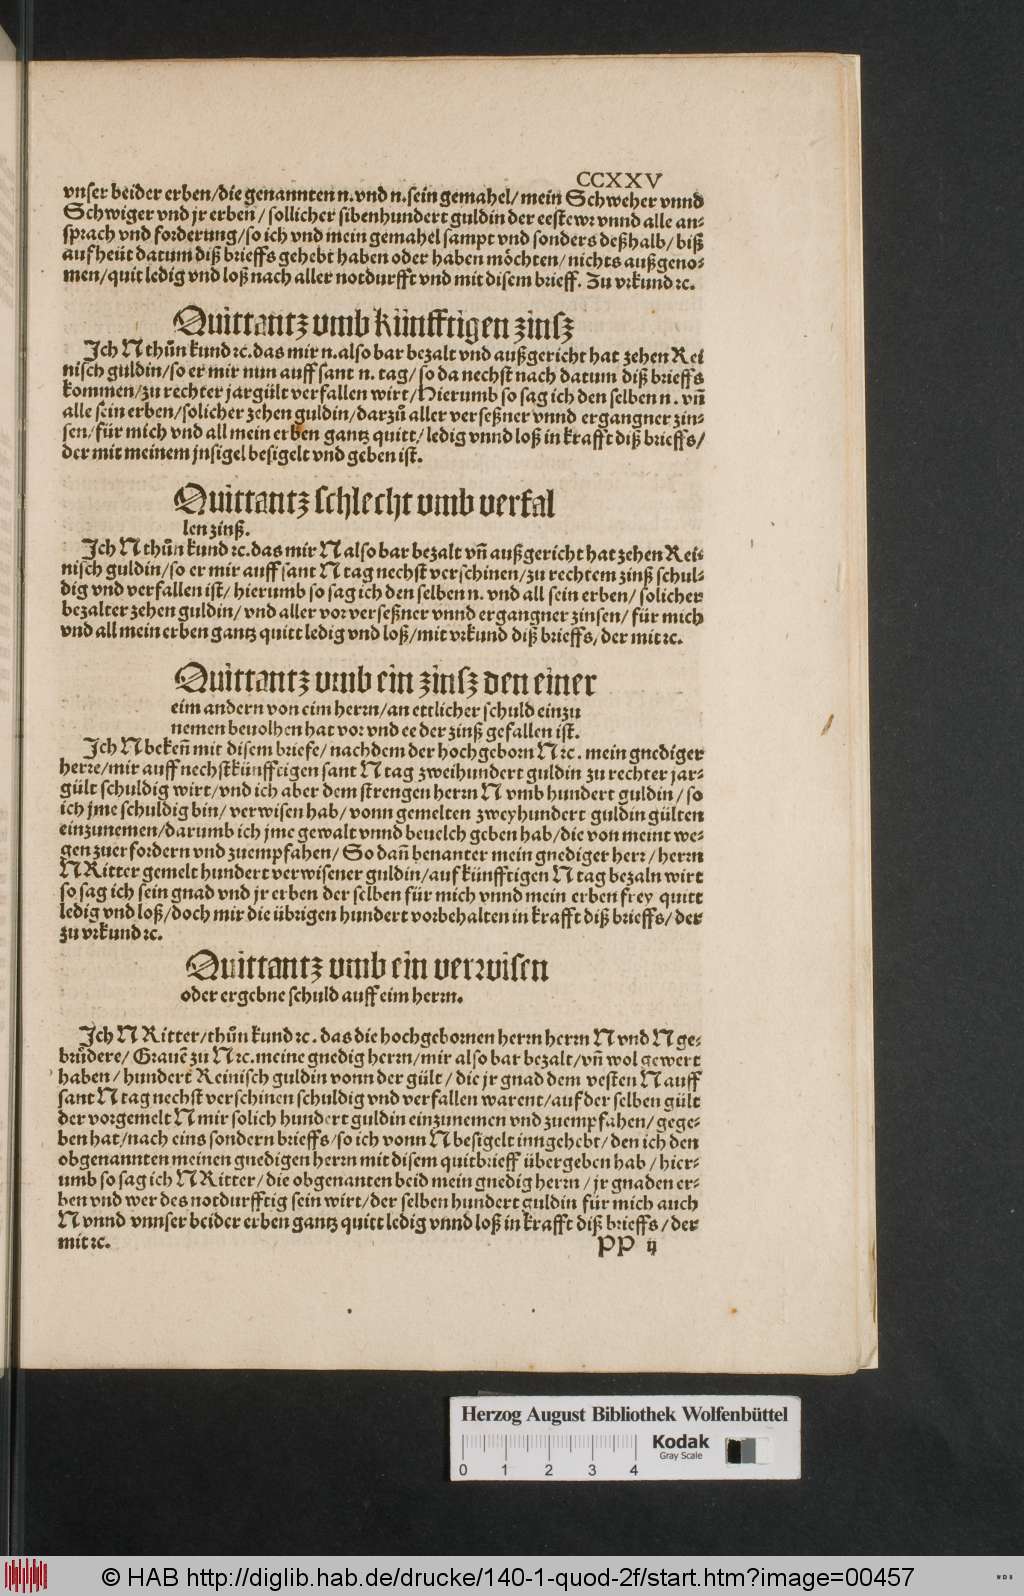 CCXXV
vnser beider erben/die genannten n. vnd n. sein gemahel/mein Schweher vnnd
Schwiger vnd jr erben/sollicher sibenhundert guldin der eestewr vnnd alle an⸗
sprach vnd forderung/so ich vnd mein gemahel sampt vnd sonders deßhalb/biß
auf heüt datum diß brieffs gehebt haben oder haben möchten/nichts außgeno⸗
men/quit ledig vnd loß nach aller notdurfft vnd mit disem brieff. Zu vrkund ⁊c.
Quittantz vmb künfftigen zinsz
Ich N thůn kund ⁊c. das mir n. also bar bezalt vnd außgericht hat zehen Rei
nisch guldin/so er mir nun auff sant n. tag/so da nechst nach datum diß brieffs
kommen/zu rechter jargült verfallen wirt/Hierumb so sag ich den selben n. vñ
alle sein erben/solicher zehen guldin/darzů aller verseßner vnnd ergangner zin⸗
sen/für mich vnd all mein erben gantz quitt/ledig vnnd loß in krafft diß brieffs/
der mit meinem jnsigel besigelt vnd geben ist.
Quittantz schlecht vmb verfal
len zinß.
Ich N thůn kund ⁊c. das mir N also bar bezalt vñ außgericht hat zehen Rei⸗
nisch guldin/so er mir auff sant N tag nechst verschinen/zu rechtem zinß schul⸗
dig vnd verfallen ist/hierumb so sag ich den selben n. vnd all sein erben/solicher
bezalter zehen guldin/vnd aller vor verseßner vnnd ergangner zinsen/für mich
vnd all mein erben gantz quitt ledig vnd loß/mit vrkund diß brieffs/der mit ⁊c.
Quittantz vmb ein zinsz den einer
eim andern von eim herrn/an ettlicher schuld einzu
nemen beuolhen hat vor vnd ee der zinß gefallen ist.
Ich N bekeñ mit disem briefe/nachdem der hochgeborn N ⁊c. mein gnediger
herre/mir auff nechstkünfftigen sant N tag zweihundert guldin zu rechter jar⸗
gült schuldig wirt/vnd ich aber dem strengen herrn N vmb hundert guldin/so
ich jme schuldig bin/verwisen hab/vonn gemelten zweyhundert guldin gülten
einzunemen/darumb ich jme gewalt vnnd beuelch geben hab/die von meint we⸗
gen zuerfordern vnd zuempfahen/So dañ benanter mein gnediger herr/herrn
N Ritter gemelt hundert verwisener guldin/auf künfftigen N tag bezaln wirt
so sag ich sein gnad vnd jr erben der selben für mich vnnd mein erben frey quitt
ledig vnd loß/doch mir die übrigen hundert vorbehalten in krafft diß brieffs/der
zu vrkund ⁊c.
Quittantz vmb ein verwisen
oder ergebne schuld auff eim herrn.
Ich N Ritter/thůn kund ⁊c. das die hochgebornen herrn herrn N vnd N ge⸗
brůdere/Grauē zu N ⁊c. meine gnedig herrn/mir also bar bezalt/vñ wol gewert
haben/hundert Reinisch guldin vonn der gült/die jr gnad dem vesten N auff
sant N tag nechst verschinen schuldig vnd verfallen warent/auf der selben gült
der vorgemelt N mir solich hundert guldin einzunemen vnd zuempfahen/gege⸗
ben hat/nach eins sondern brieffs/so ich vonn N besigelt inngehebt/den ich den
obgenannten meinen gnedigen herrn mit disem quitbrieff übergeben hab/hier⸗
umb so sag ich N Ritter/die obgenanten beid mein gnedig herrn/jr gnaden er⸗
ben vnd wer des notdurfftig sein wirt/der selben hundert guldin für mich auch
N vnnd vnnser beider erben gantz quitt ledig vnnd loß in krafft diß brieffs/der
mit ⁊c.
PP ij
Herzog August Bibliothek Wolfenbüttel
Kodak
Gray Scale
0 1 2 3 4
© HAB http://diglib.hab.de/drucke/140-1-quod-2f/start.htm?image=00457